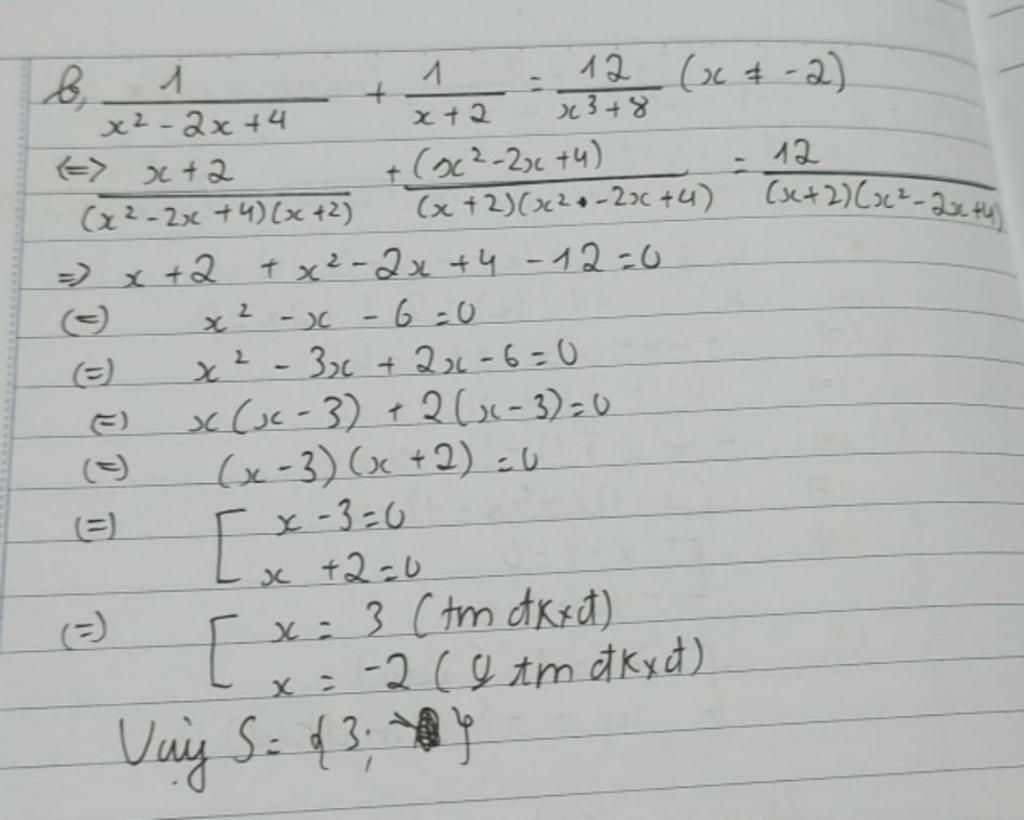 b, 1/(x² - 2x + 4) + 1/(x + 2) = 12/(x³ + 8) (x ≠ -2)
<=> (x + 2)/((x² - 2x + 4)(x + 2)) + (x² - 2x + 4)/((x + 2)(x² - 2x + 4)) = 12/((x + 2)(x² - 2x + 4))
=> x + 2 + x² - 2x + 4 - 12 = 0
(=) x² - x - 6 = 0
(=) x² - 3x + 2x - 6 = 0
(=) x(x - 3) + 2(x - 3) = 0
(=) (x - 3)(x + 2) = 0
(=) [ x - 3 = 0
x + 2 = 0
(=) [ x = 3 (tm đkxđ)
x = -2 (k tm đkxđ)
Vậy S = {3; }